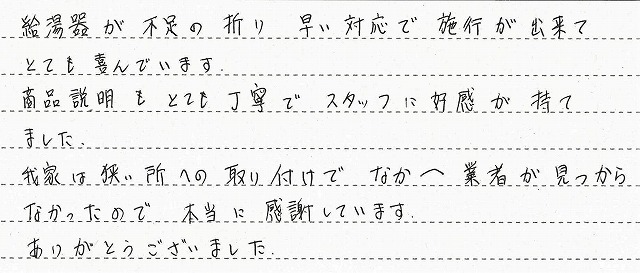 給湯器が不足の折り 早い対応で施行が出来て
とても喜んでいます.
商品説明もとても丁寧でスタッフに好感が持て
ました.
我家は狭い所への取り付けでなかへ業者が見つから
なかったので 本当に感謝しています.
ありがとうございました.